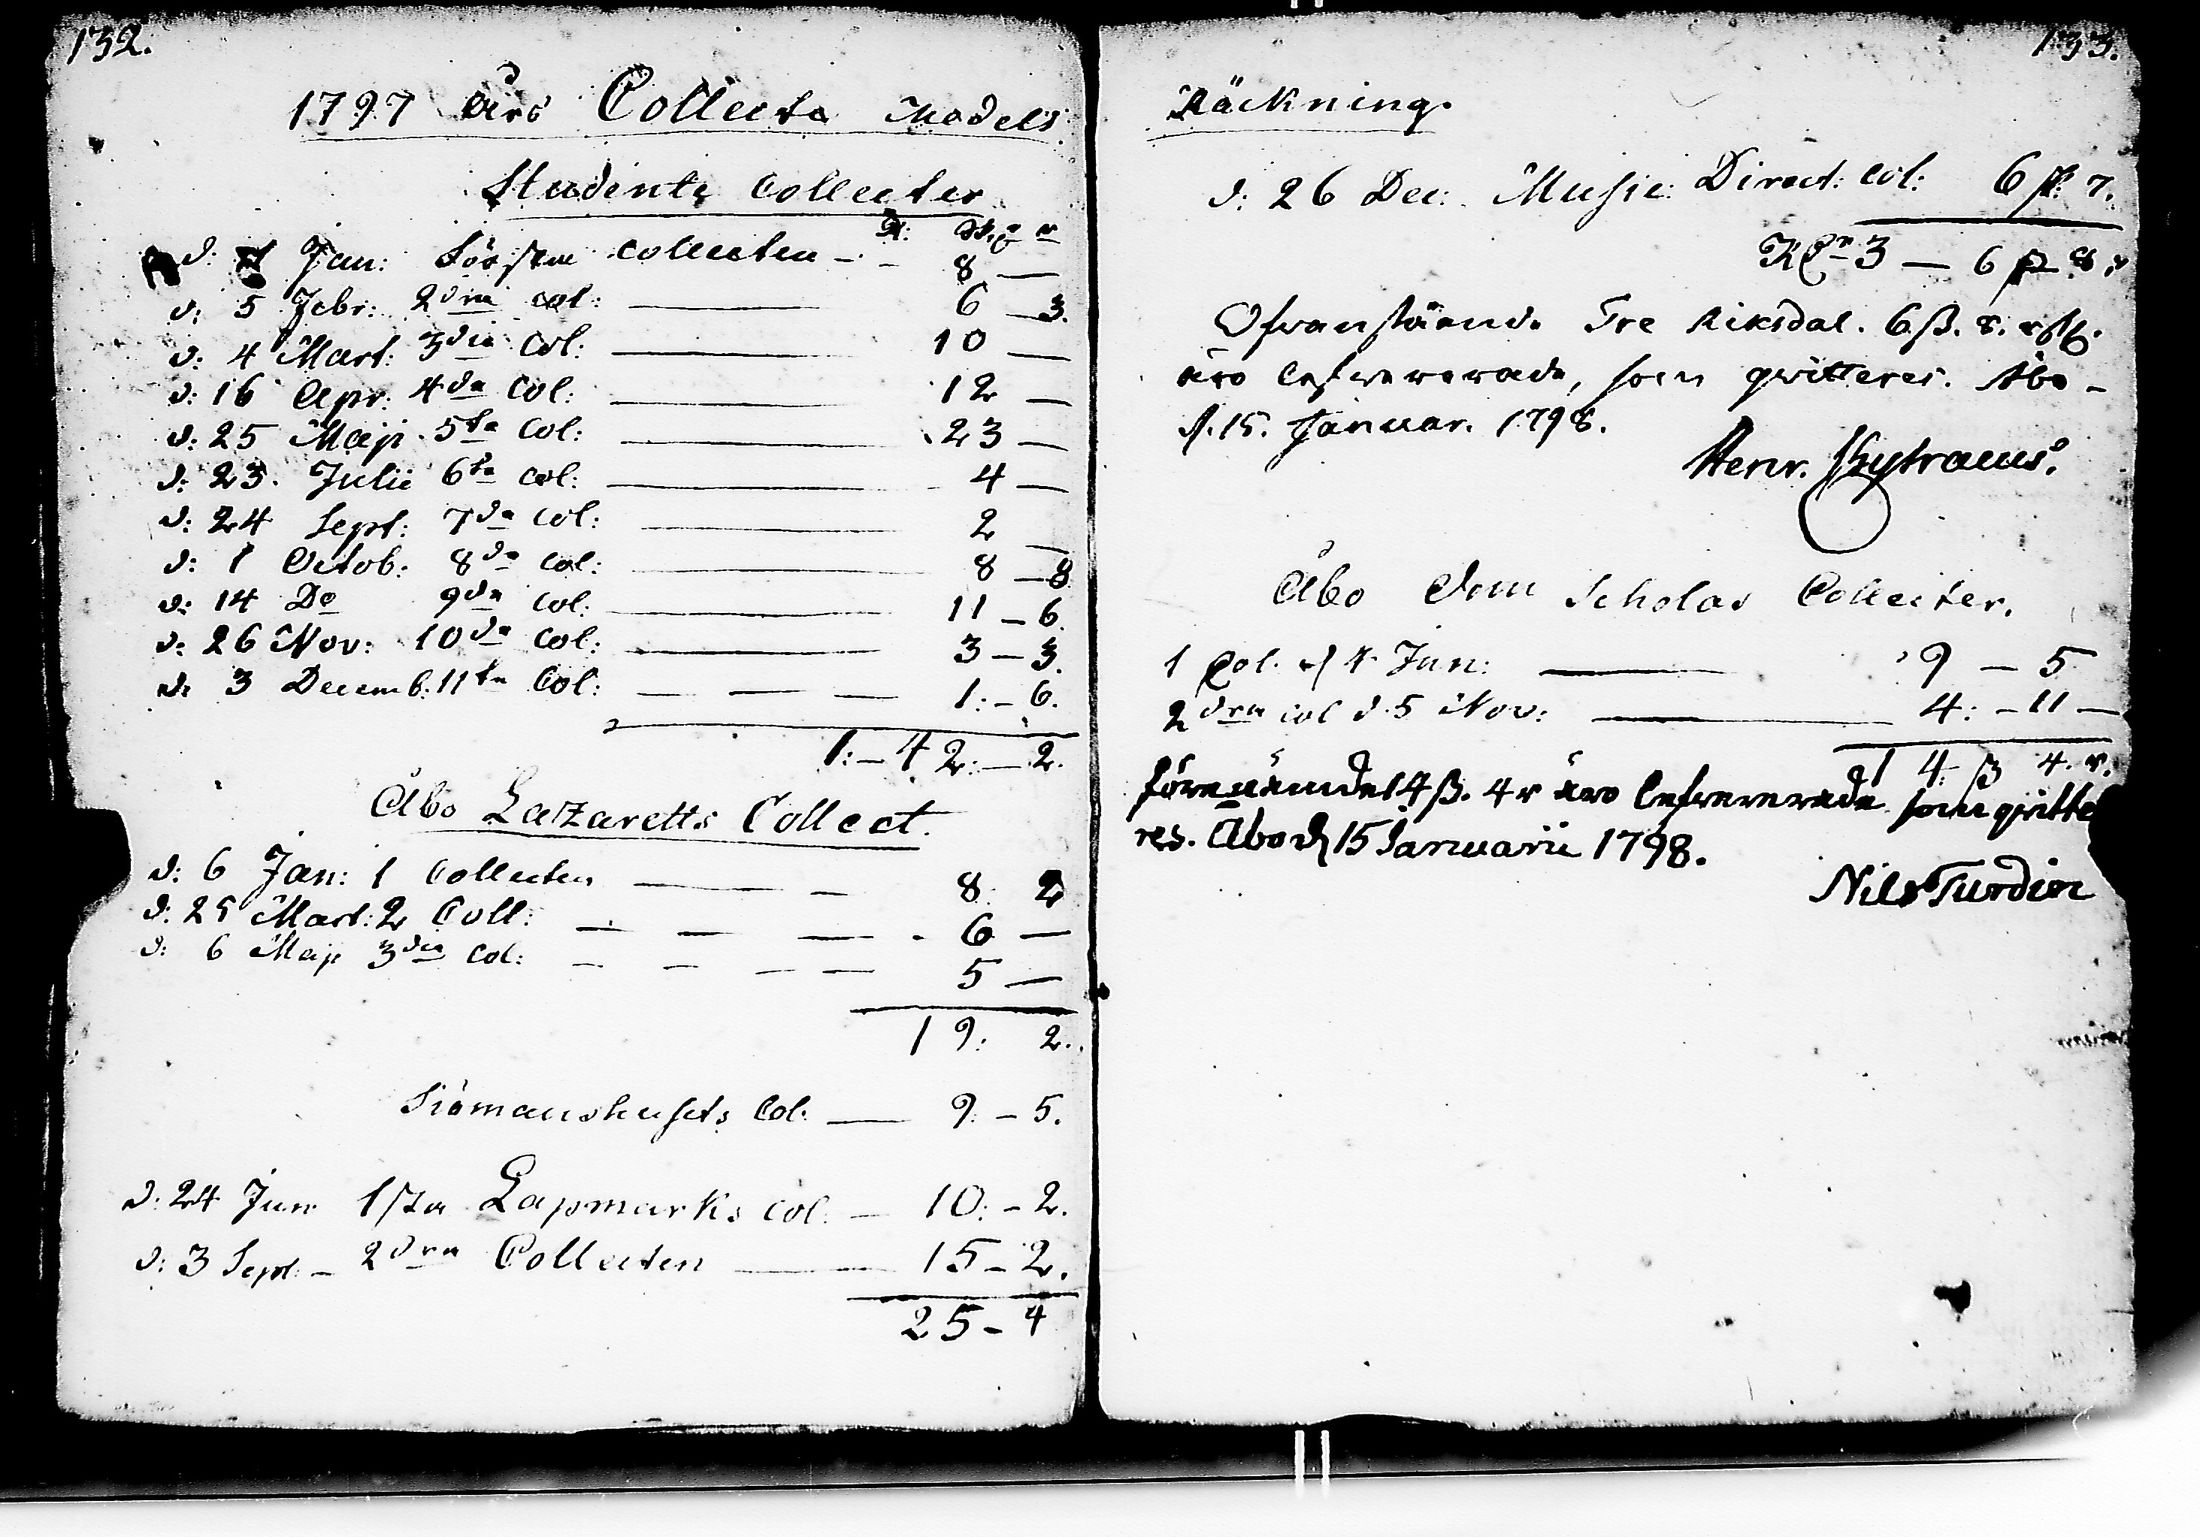 132.
1797 Års Collecte Medels
Studente Collecter
R: sk. r
d: 1 Jan: Första Collecten - - 8 —
d: 5 Febr: 2dra Col: — 6 — 3.
d: 4 Mart: 3dia Col: — 10 —
d: 16 Apr: 4da Col: — 12 —
d: 25 Maji 5ta Col: — 23 —
d: 23. Julii 6ta Col: — 4 —
d: 24 Sept: 7da Col: — 2 —
d: 1 Octob: 8da Col: — 8 — 8
d: 14 Do 9da Col: — 11 — 6.
d: 26 Nov: 10da Col: — 3 — 3.
d: 3 Decemb: 11ta Col: — — — 1: - 6.
1: — 42: — 2.
Åbo Lazaretts Collect.
d: 6 Jan: 1 Collecten — — 8: 2
d: 25 Mart: 2 Coll: — — — 6 —
d: 6 Maji 3dia Col: — — — — 5 —
19: 2.
Siömanshusets Col: — 9: - 5.
d: 24 Jun 1sta Lapmarks Col: — 10: - 2.
d: 3 Sept: - 2dra Collecten — 15 - 2.
25 - 4
133.
Räckning.
d: 26 Dec: Music: Direct: Col: 6 ß: 7.
3 — 6 ß 8 r
Ofvanstående Tre Riksdal. 6 ß. 8. r
äro lefvererade, som qvitteres. Åbo -
d. 15. Januar. 1798.
Henr.
Åbo Dom Scholas Collecter.
1 Col. d 1 Jan: — 9 — 5
2dra Col d. 5 Nov: — 4: - 11 —
14 ß 4. r.
förenämde 14 ß. 4 r äro lefvererade som qvitte
res. Åbo d 15 Januarii 1798.
Nils Turdin